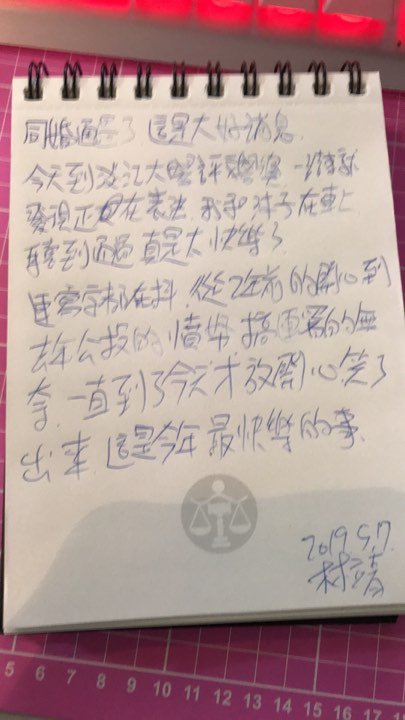 同婚通過了 這是大好消息
今天到淡江大學評鑑 一結束就
發現正在表決 我和 子在車上
看到通過 真是太快樂了
連寫字都在抖 從 的開心到
去年公投的憤怒 搞 的無
奈 一直到了今天才放開心笑了
出來 這是今年最快樂的事
2019.5.17.
林 青
5 6 7 8 9 10 11 12 13 14 15 16 17